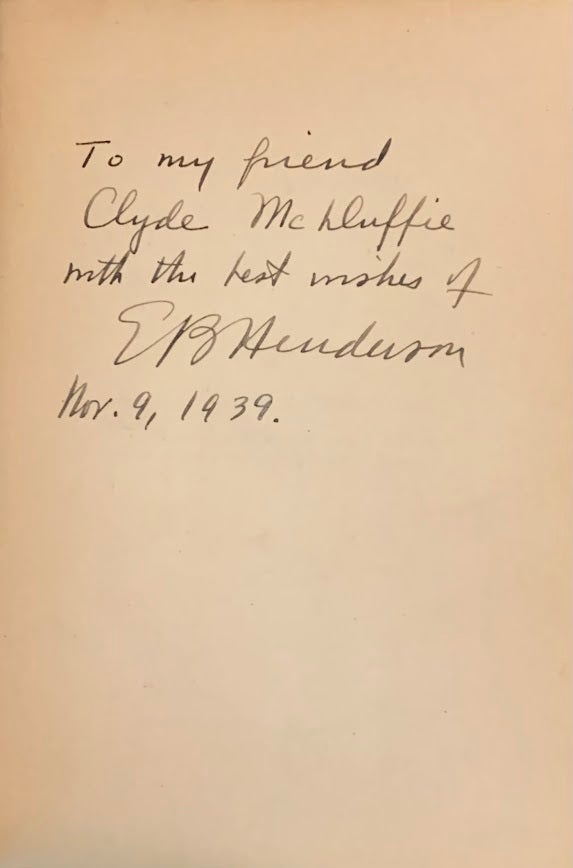 To my friend
Clyde McDuffie
with the best wishes of
EB Henderson
Nov. 9, 1939.